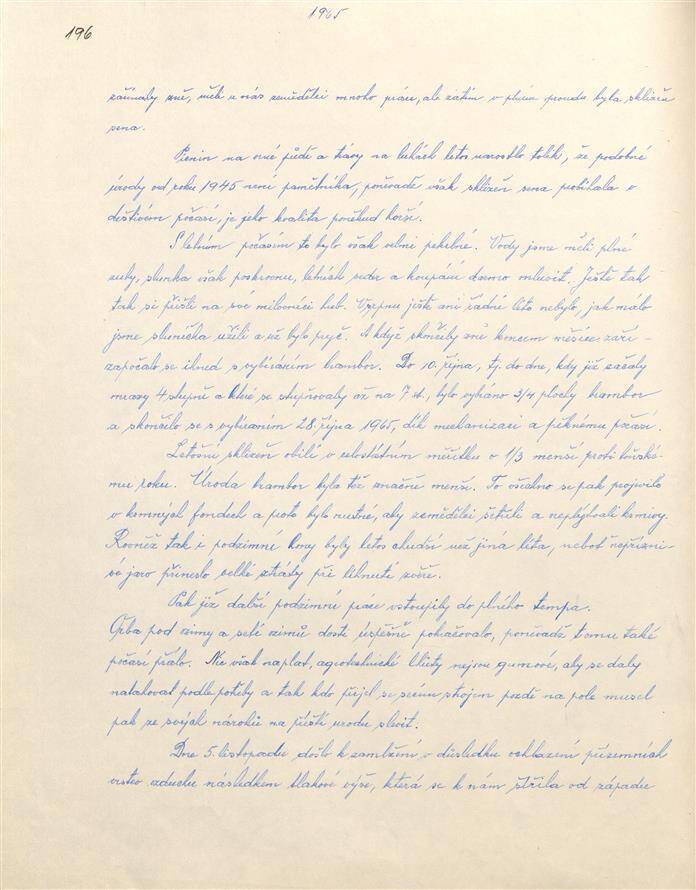 1965
196
začínaly žně, měli u nás zemědělci mnoho práce, ale zatím v plném proudu byla sklizeň
sena.
Pícnin na orné půdě a trávy na lukách letos narostlo tolik, že podobné
úrody od roku 1945 není pamětníka, poněvadž však sklizeň sena probíhala v
deštivém počasí, je jeho kvalita poněkud horší.
S letním počasím to bylo však velmi pochybné. Vody jsme měli plné
zuby, slunka však poskrovnu, letních veder a koupání dnemo mluvit. Ještě tak
tak si přišli na své milovníci hub. Vzepnu jistě ani řádné léto nebylo, jak málo
jsme sluníčka užili a už bylo pryč. A když skončily žně koncem měsíce září -
započalo se ihned s vybíráním brambor. Do 10. října, tj. do dne, kdy již začaly
mrazy 4 stupně a které se stupňovaly až na 7 st., bylo vybráno 3/4 plochy brambor
a skončilo se s vybíraním 28. října 1965, dík mechanizaci a pěknému počasí.
Letošní sklizeň obilí v celostátním měřítku o 1/3 menší proti loňské-
mu roku. Úroda brambor byla též značně menší. To všechno se pak projevilo
v krmných fondech a proto bylo nutné, aby zemědělci šetřili a neplýtvali krmivy.
Rovněž tak i podzimní hony byly letos chudší než jiná léta, neboť nepřízni-
vé jaro přineslo velké ztráty při líhnutí zvěře.
Pak již další podzimní práce vstoupily do plného tempa.
Orba pod zimy a setí ozimů dosti úspěšně pokračovalo, poněvadž tomu také
počasí přálo. Nic však naplat, agrotechnické lhůty nejsou gumové, aby se daly
natahovat podle potřeby a tak kdo přijel se secím strojem pozdě na pole musel
pak ze svých nároků na příští urodu slevit.
Dne 5. listopadu došlo k zamlžení v důsledku ochlazení přízemních
vrstev vzduchu následkem tlakové výše, která se k nám šířila od západu